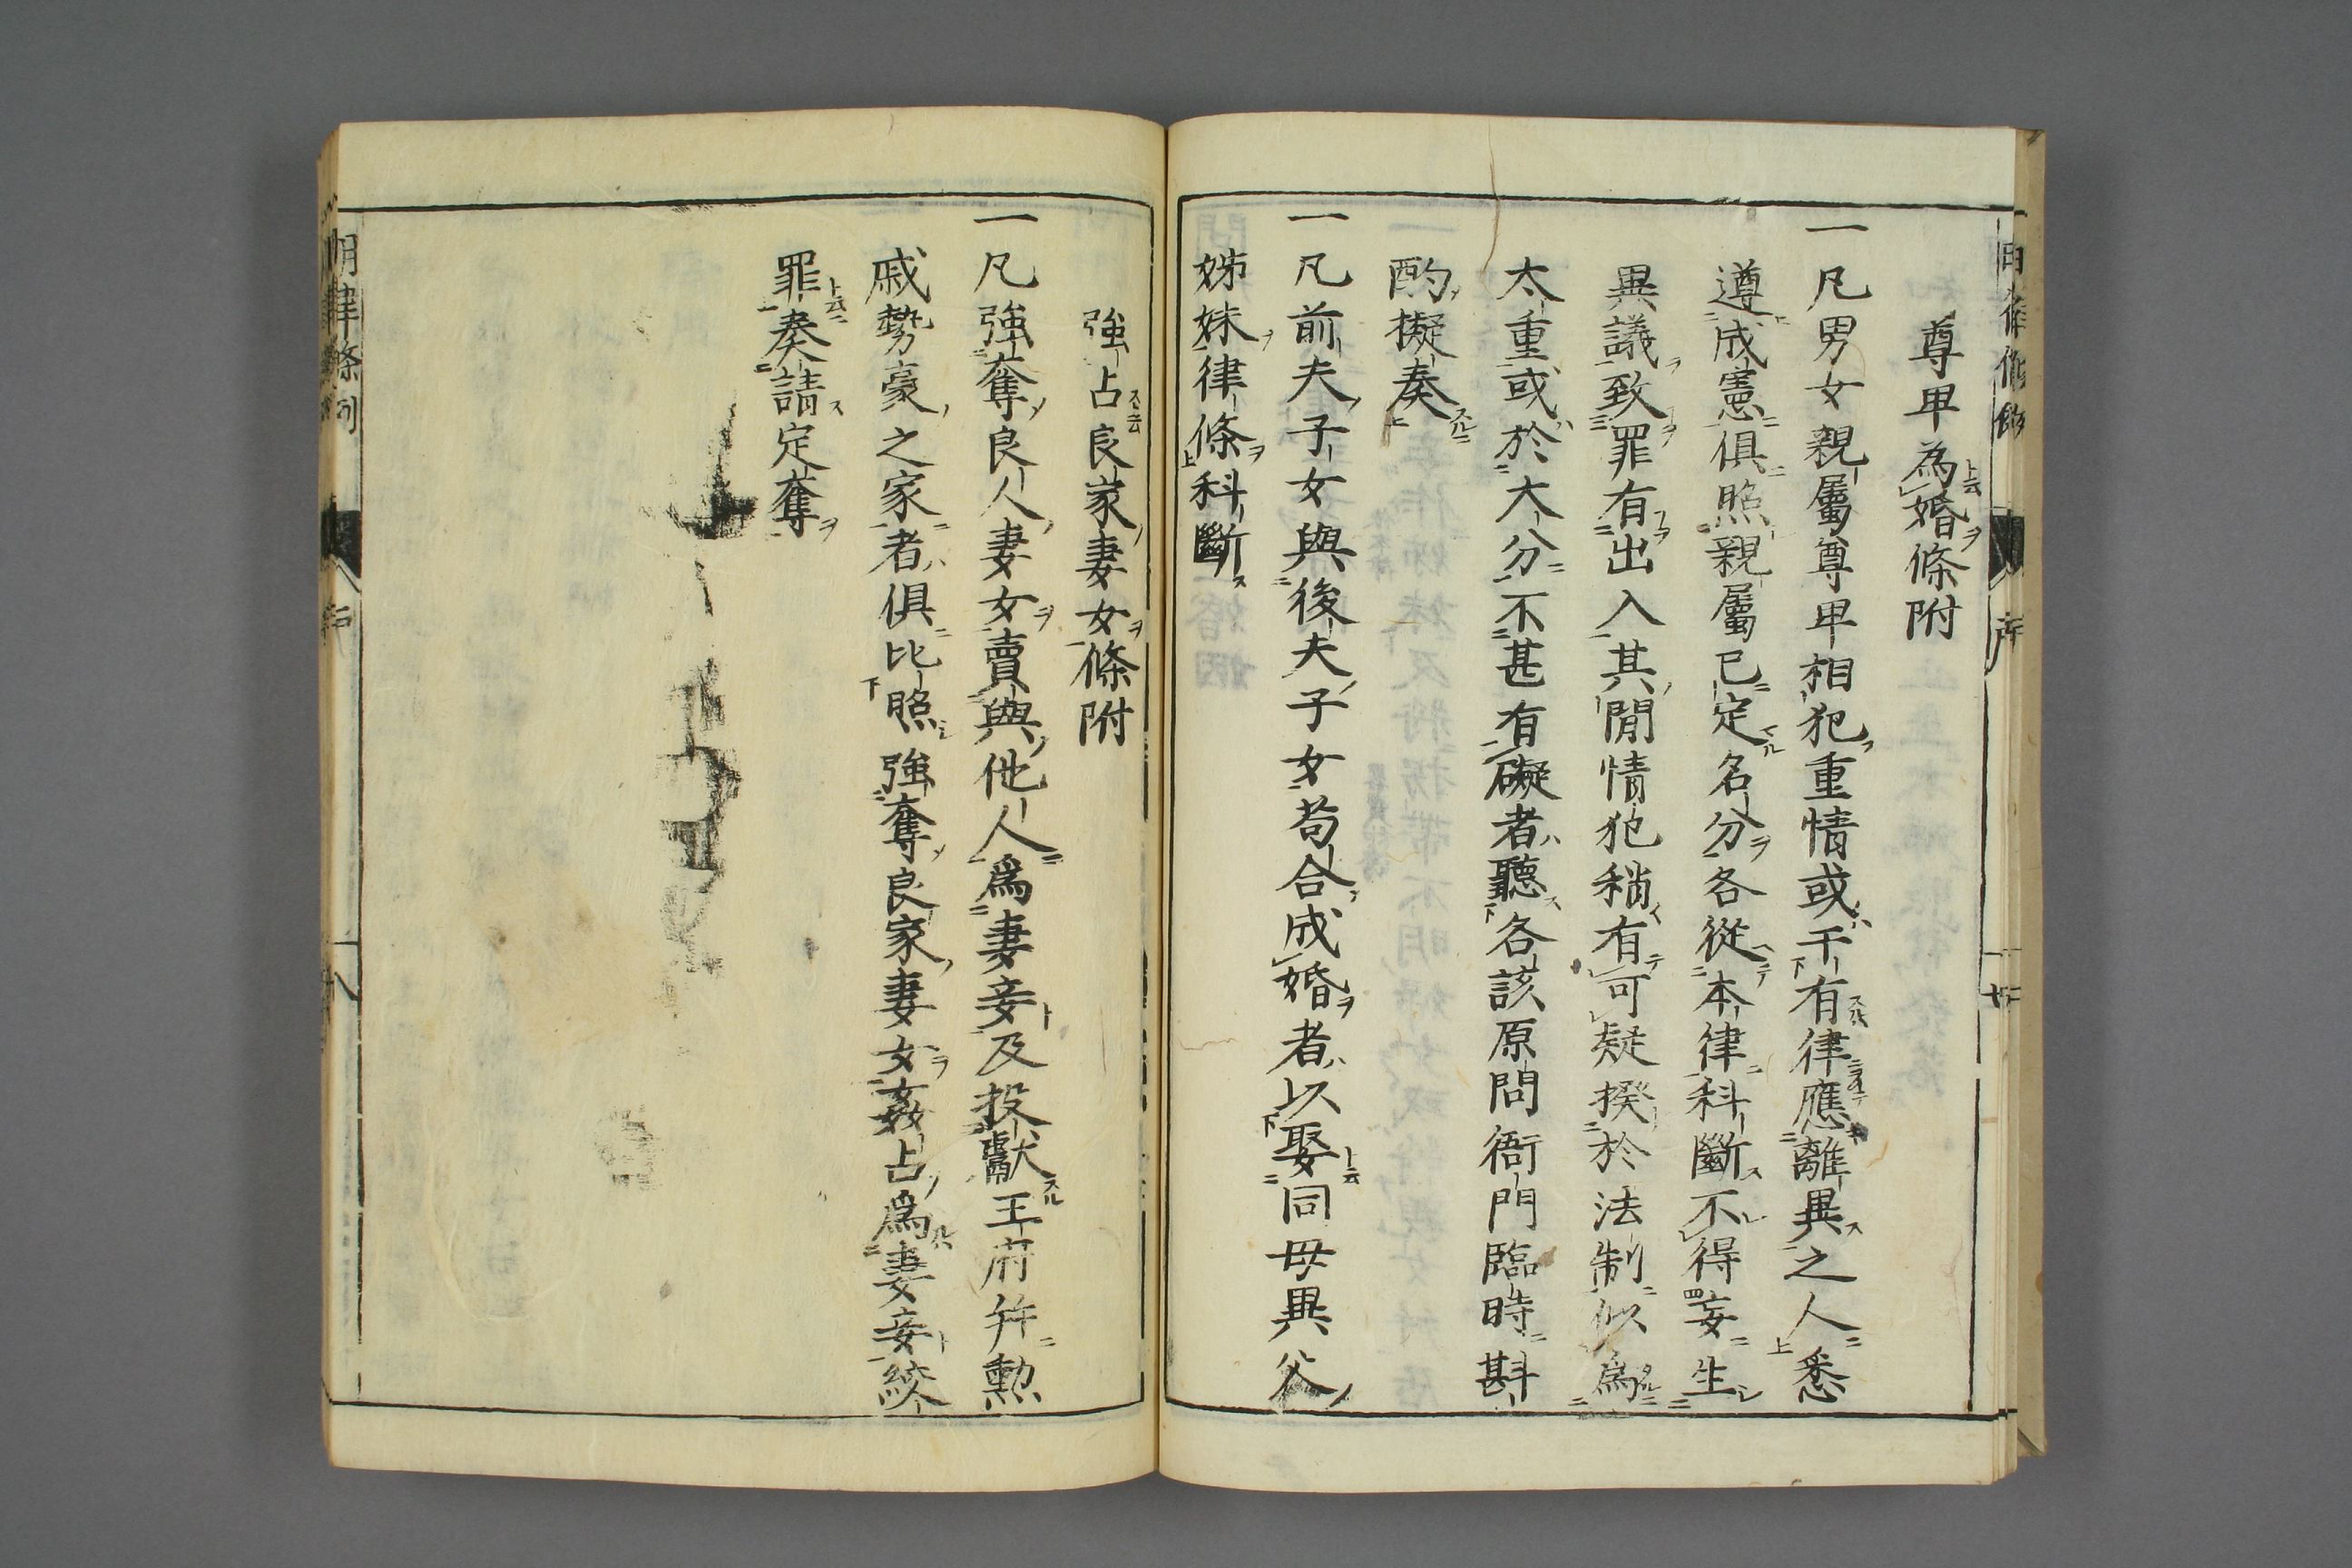 尊卑為婚條附
一凡男女親屬尊卑相犯重情或干有律應離異之人悉
遵成憲俱照親屬已定名分各從本律科斷不得妄生
異議致罪有出入其閒情犯稍有可疑揆於法制似為
太重或於大分不甚有礙者聽各該原問衙門臨時斟
酌擬奏
一凡前夫子女與後夫子女苟合成婚者以娶同母異父
姊妹律條科斷
強占良家妻女條附
一凡強奪良人妻女賣與他人爲妻妾及投獻王府并勲
戚勢豪之家者俱比照強奪良家妻女姦占爲妻妾絞
罪奏請定奪
明律條例
十八